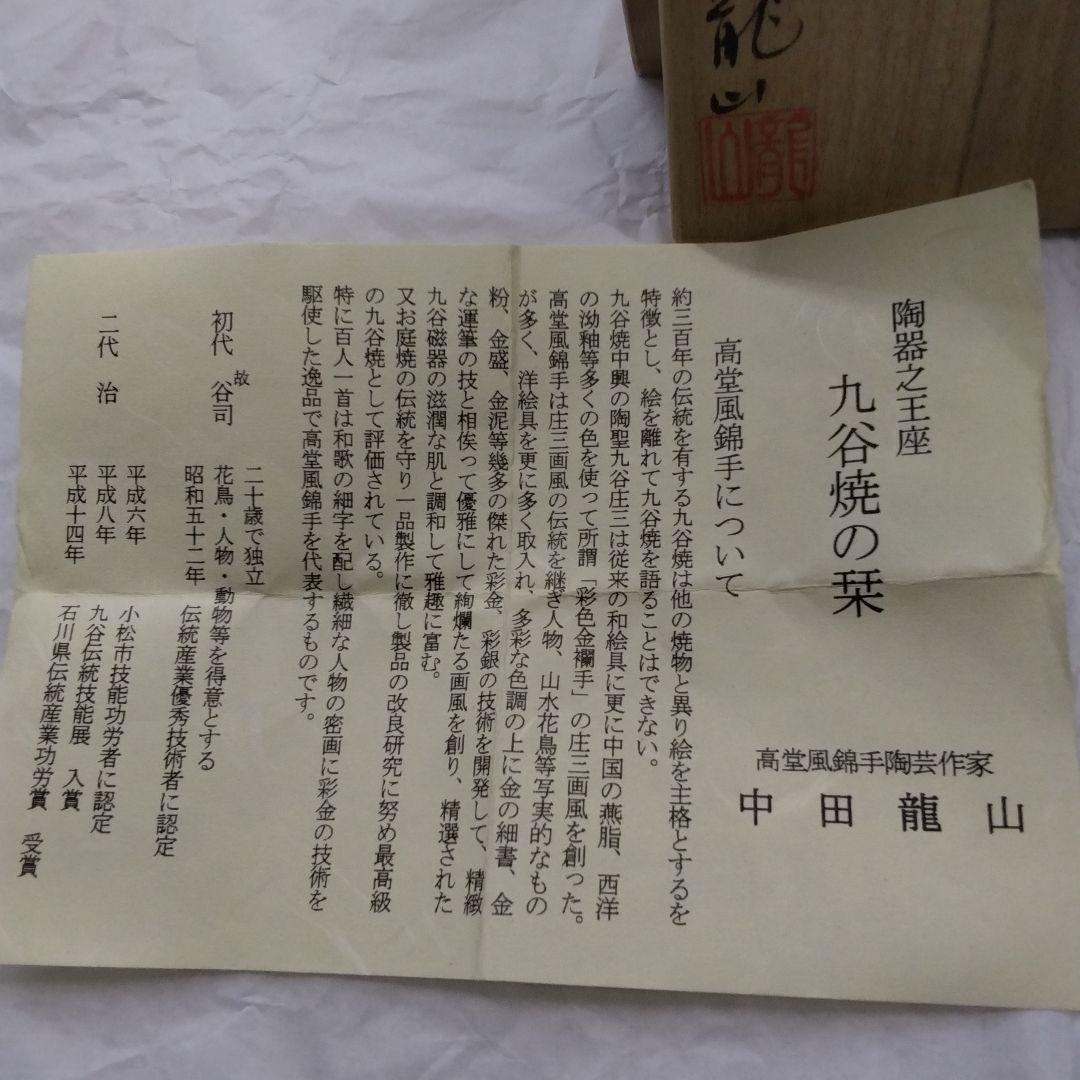 龍山
龍山
陶器之王座
九谷焼の栞
高堂風錦手陶芸作家
中田龍山
高堂風錦手について
約三百年の伝統を有する九谷焼は他の焼物と異り絵を主格とするを
特徴とし、絵を離れて九谷焼を語ることはできない。
九谷焼中興の陶聖九谷庄三は従来の和絵具に更に中国の燕脂、西洋
の泑釉等多くの色を使って所謂「彩色金襴手」の庄三画風を創った。
高堂風錦手は庄三画風の伝統を継ぎ人物、山水花鳥等写実的なもの
が多く、洋絵具を更に多く取入れ、多彩な色調の上に金の細書、金
粉、金盛、金泥等幾多の傑れた彩金、彩銀の技術を開発して、精緻
な運筆の技と相俟って優雅にして絢爛たる画風を創り、精選された
九谷磁器の滋潤な肌と調和して雅趣に富む。
又お庭焼の伝統を守り一品製作に徹し製品の改良研究に努め最高級
の九谷焼として評価されている。
特に百人一首は和歌の細字を配し繊細な人物の密画に彩金の技術を
駆使した逸品で高堂風錦手を代表するものです。
初代 故 谷司
二十歳で独立
花鳥・人物・動物等を得意とする
昭和五十二年 伝統産業優秀技術者に認定
二代 治
平成六年 小松市技能功労者に認定
平成八年 九谷伝統技能展 入賞
平成十四年 石川県伝統産業功労賞 受賞